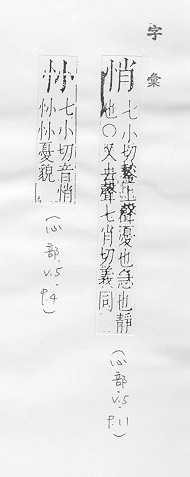 字彙
悄 七小切鍫上聲憂也急也靜
也○又去聲七肖切義同
(心部.v.5 p.11)
忄小 七小切音悄
忄小忄小憂貌
(心部.v.5 p.4)